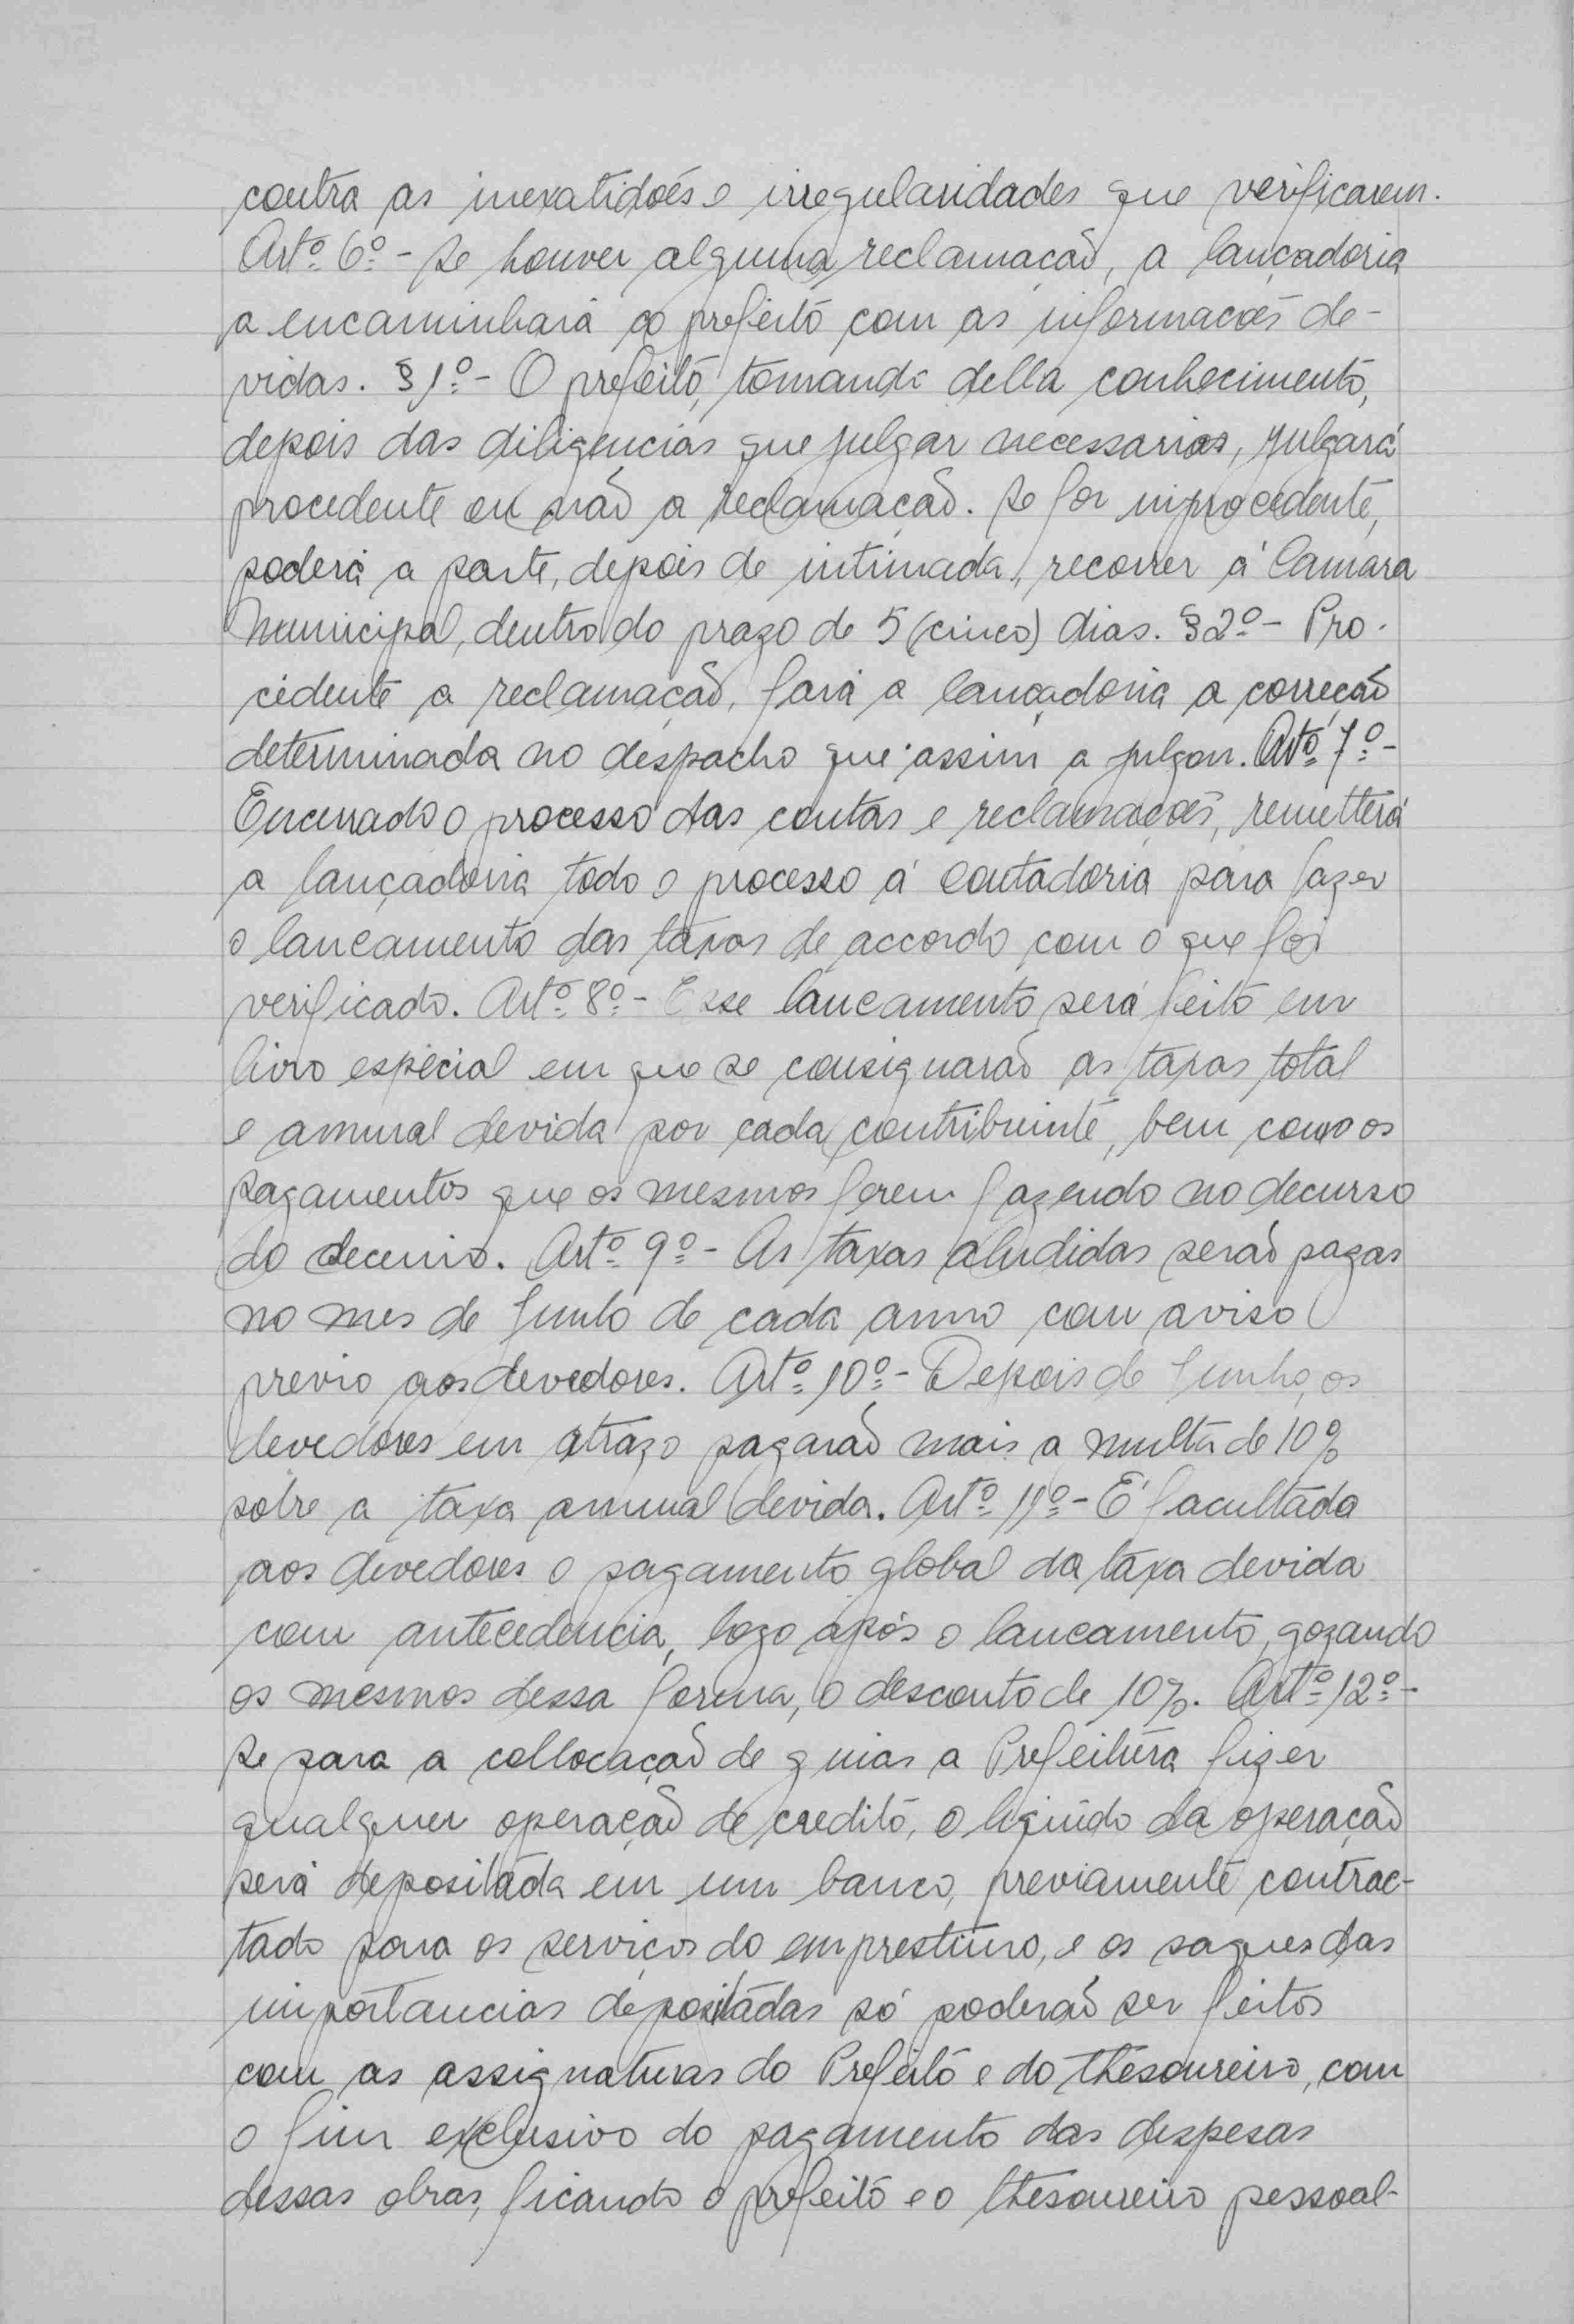 contra as inexatidões e irregularidades que verificarem.
Artº 6º - Se houver alguma reclamação, a lançadoria
a encaminhará ao prefeito com as informações de-
vidas. § 1º - O prefeito, tomando della conhecimento,
depois das diligencias que julgar necessarias, julgará
procedente ou não a reclamação. Se for improcedente,
poderá a parte, depois de intimada, recorrer á Camara
Municipal, dentro do prazo de 5 (cinco) dias. § 2º - Pro-
cedente a reclamação, fará a lançadoria a correção
determinada no despacho que assim a julgou. Artº 7º -
Encerrado o processo das contas e reclamações, remetterá
a lançadoria todo o processo á contadoria para fazer
o lancamento das taxas de accordo com o que foi
verificado. Artº 8º - Esse lancamento será feito em
livro especial em que se consignarão as taxas total
e annual devida por cada contribuinte, bem como os
pagamentos que os mesmos forem fazendo no decurso
do decenio. Artº 9º - As taxas aludidas serão pagas
no mes de Junho de cada anno com aviso
previo aos devedores. Artº 10º - Depois de Junho, os
devedores em atrazo pagarão mais a multa de 10%
sobre a taxa annual devida. Artº 11º - É facultada
aos devedores o pagamento global da taxa devida
com antecedencia, logo após o lancamento, gozando
os mesmos dessa forma, o desconto de 10%. Artº 12º -
Se para a collocação de guias a Prefeitura fizer
qualquer operação de credito, o liquido da operação
será depositada em um banco, previamente contrac-
tado para os serviços do emprestimo, e os saques das
importancias depositadas só poderão ser feitos
com as assignaturas do Prefeito e do thesoureiro, com
o fim exclusivo do pagamento das despesas
dessas obras, ficando o prefeito e o thesoureiro pessoal-